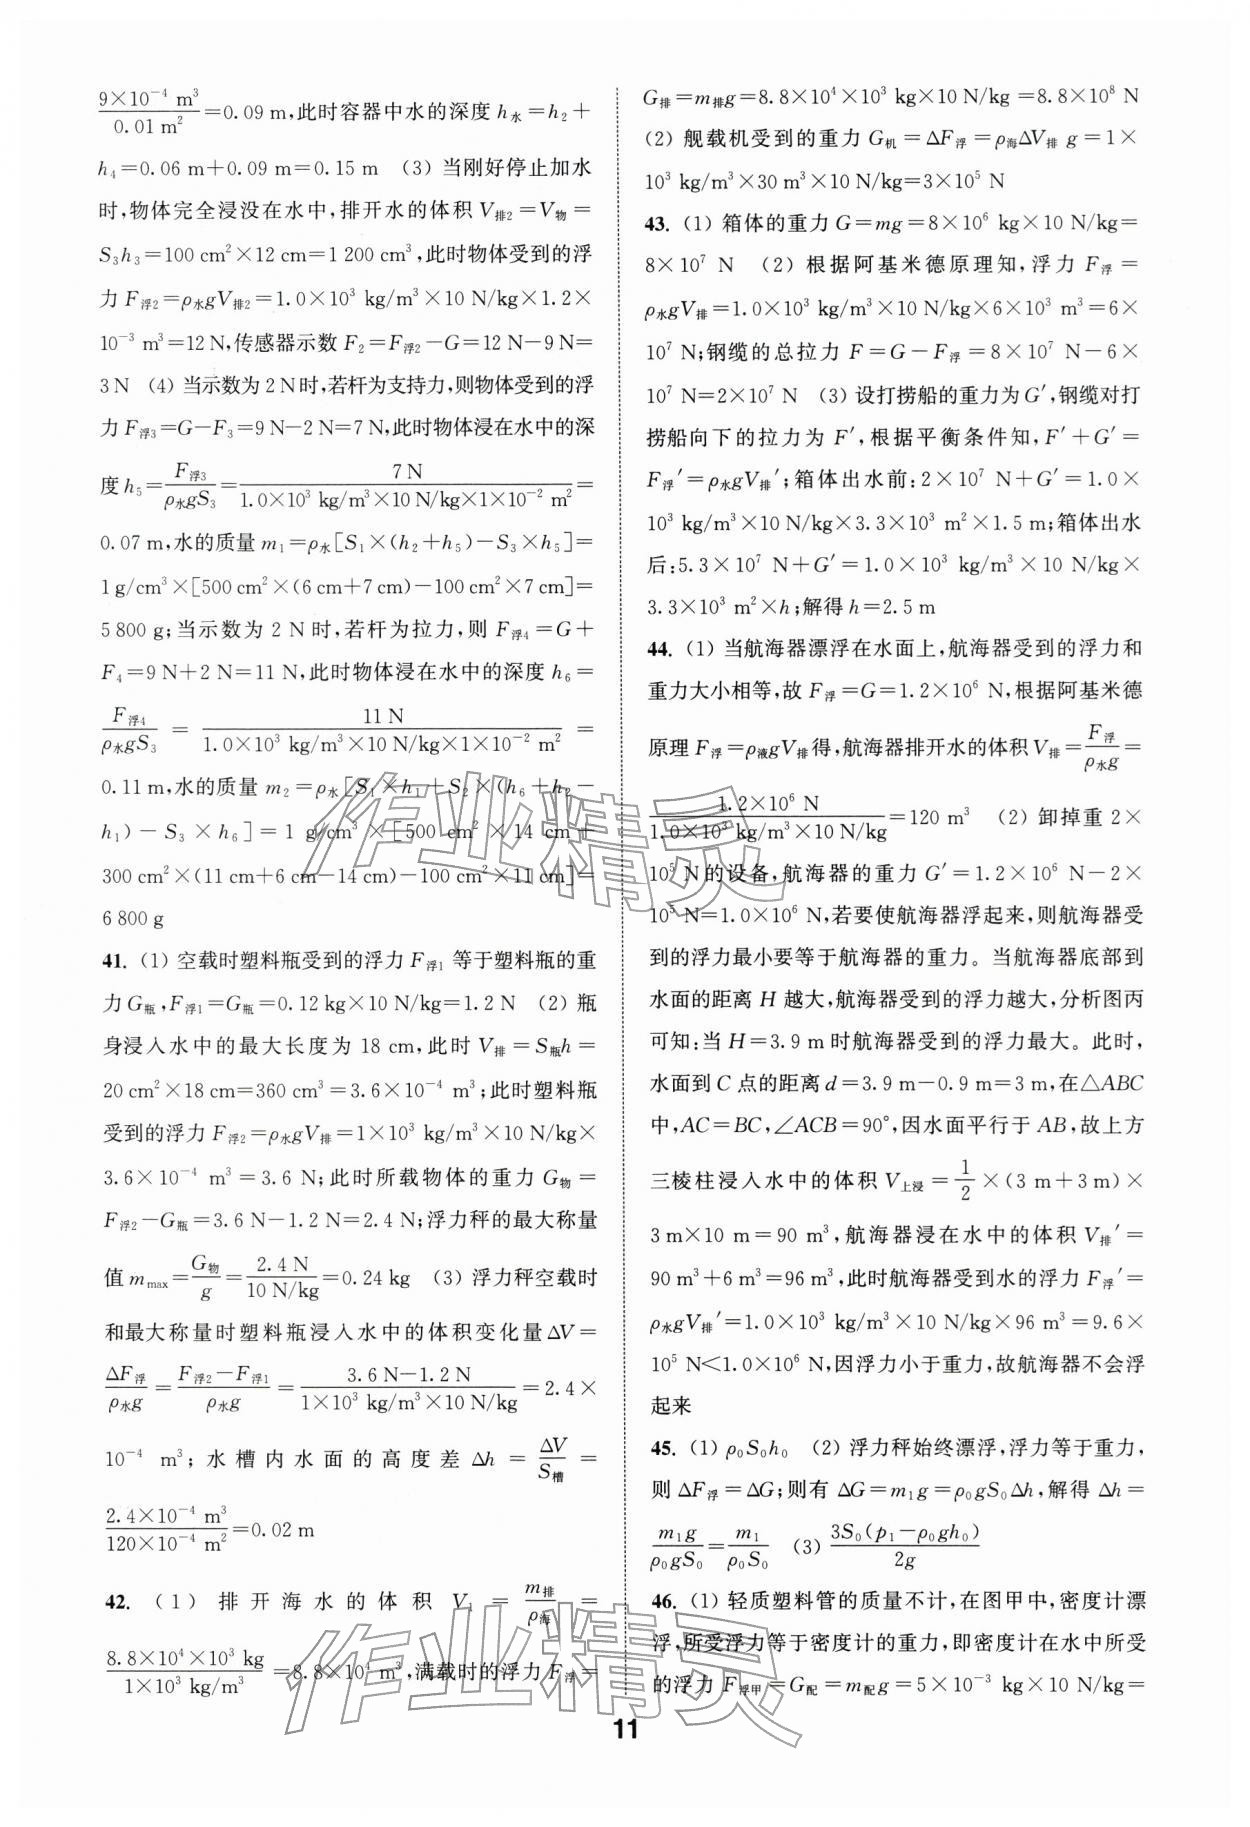 9×10⁻⁴ m³/0.01 m²=0.09 m,此时容器中水的深度 h水=h₂+
h₄=0.06 m+0.09 m=0.15 m (3) 当刚好停止加水
时,物体完全浸没在水中,排开水的体积 V排₂=V物=
S₃h₃=100 cm²×12 cm=1 200 cm³,此时物体受到的浮
力 F浮₂=ρ水gV排₂=1.0×10³ kg/m³×10 N/kg×1.2×
10⁻³ m³=12 N,传感器示数 F₂=F浮₂-G=12 N-9 N=
3 N (4) 当示数为 2 N时,若杆为支持力,则物体受到的浮
力 F浮₃=G-F₃=9 N-2 N=7 N,此时物体浸在水中的深
度 h₅=F浮₃/ρ水gS₃=7 N/1.0×10³ kg/m³×10 N/kg×1×10⁻² m²=
0.07 m,水的质量 m₁=ρ水[S₁×(h₂+h₅)-S₃×h₅]=
1 g/cm³×[500 cm²×(6 cm+7 cm)-100 cm²×7 cm]=
5 800 g;当示数为 2 N 时,若杆为拉力,则 F浮₄=G+
F₄=9 N+2 N=11 N,此时物体浸在水中的深度 h₆=
F浮₄/ρ水gS₃ = 11 N/1.0×10³ kg/m³×10 N/kg×1×10⁻² m² =
0.11 m,水的质量 m₂=ρ水[S₁×h₁+S₂×(h₆+h₂-
h₁)-S₃×h₆]=1 g/cm³×[500 cm²×14 cm+
300 cm²×(11 cm+6 cm-14 cm)-100 cm²×11 cm]=
6 800 g
41. (1) 空载时塑料瓶受到的浮力 F浮₁ 等于塑料瓶的重
力 G瓶,F浮₁=G瓶=0.12 kg×10 N/kg=1.2 N (2) 瓶
身浸入水中的最大长度为 18 cm,此时 V排=S瓶h=
20 cm²×18 cm=360 cm³=3.6×10⁻⁴ m³;此时塑料瓶
受到的浮力 F浮₂=ρ水gV排=1×10³ kg/m³×10 N/kg×
3.6×10⁻⁴ m³=3.6 N;此时所载物体的重力 G物=
F浮₂-G瓶=3.6 N-1.2 N=2.4 N;浮力秤的最大称量
值 mmax=G物/g=2.4 N/10 N/kg=0.24 kg (3) 浮力秤空载时
和最大称量时塑料瓶浸入水中的体积变化量 ΔV=
ΔF浮/ρ水g=F浮₂-F浮₁/ρ水g=3.6 N-1.2 N/1×10³ kg/m³×10 N/kg=2.4×
10⁻⁴ m³;水槽内水面的高度差 Δh=ΔV/S槽=
2.4×10⁻⁴ m³/120×10⁻⁴ m²=0.02 m
42. (1) 排开海水的体积 V₁=m排/ρ海=
8.8×10⁴×10³ kg/1×10³ kg/m³=8.8×10⁴ m³,满载时的浮力 F浮=
G排=m排g=8.8×10⁴×10³ kg×10 N/kg=8.8×10⁸ N
(2) 舰载机受到的重力 G机=ΔF浮=ρ海ΔV排 g=1×
10³ kg/m³×30 m³×10 N/kg=3×10⁵ N
43. (1) 箱体的重力 G=mg=8×10⁶ kg×10 N/kg=
8×10⁷ N (2) 根据阿基米德原理知,浮力 F浮=
ρ水gV排=1.0×10³ kg/m³×10 N/kg×6×10³ m³=6×
10⁷ N;钢缆的总拉力 F=G-F浮=8×10⁷ N-6×
10⁷ N=2×10⁷ N (3) 设打捞船的重力为 G′,钢缆对打
捞船向下的拉力为 F′,根据平衡条件知,F′+G′=
F浮′=ρ水gV排′;箱体出水前:2×10⁷ N+G′=1.0×
10³ kg/m³×10 N/kg×3.3×10³ m²×1.5 m;箱体出水
后:5.3×10⁷ N+G′=1.0×10³ kg/m³×10 N/kg×
3.3×10³ m²×h;解得 h=2.5 m
44. (1) 当航海器漂浮在水面上,航海器受到的浮力和
重力大小相等,故 F浮=G=1.2×10⁶ N,根据阿基米德
原理 F浮=ρ液gV排得,航海器排开水的体积 V排=F浮/ρ水g=
1.2×10⁶ N/1.0×10³ kg/m³×10 N/kg=120 m³ (2) 卸掉重 2×
10⁵ N的设备,航海器的重力 G′=1.2×10⁶ N-2×
10⁵ N=1.0×10⁶ N,若要使航海器浮起来,则航海器受
到的浮力最小要等于航海器的重力。当航海器底部到
水面的距离 H 越大,航海器受到的浮力越大,分析图丙
可知:当 H=3.9 m 时航海器受到的浮力最大。此时,
水面到 C 点的距离 d=3.9 m-0.9 m=3 m,在△ABC
中,AC=BC,∠ACB=90°,因水面平行于 AB,故上方
三棱柱浸入水中的体积 V上浸=1/2×(3 m+3 m)×
3 m×10 m=90 m³,航海器浸在水中的体积 V排′=
90 m³+6 m³=96 m³,此时航海器受到水的浮力 F浮′=
ρ水gV排′=1.0×10³ kg/m³×10 N/kg×96 m³=9.6×
10⁵ N<1.0×10⁶ N,因浮力小于重力,故航海器不会浮
起来
45. (1) ρ₀S₀h₀ (2) 浮力秤始终漂浮,浮力等于重力,
则 ΔF浮=ΔG;则有 ΔG=m₁g=ρ₀gS₀Δh,解得 Δh=
m₁g/ρ₀gS₀=m₁/ρ₀S₀ (3) 3S₀(p₁-ρ₀gh₀)/2g
46. (1) 轻质塑料管的质量不计,在图甲中,密度计漂
浮,所受浮力等于密度计的重力,即密度计在水中所受
的浮力 F浮甲=G配=m配g=5×10⁻³ kg×10 N/kg=
11
作业精灵
作业精灵